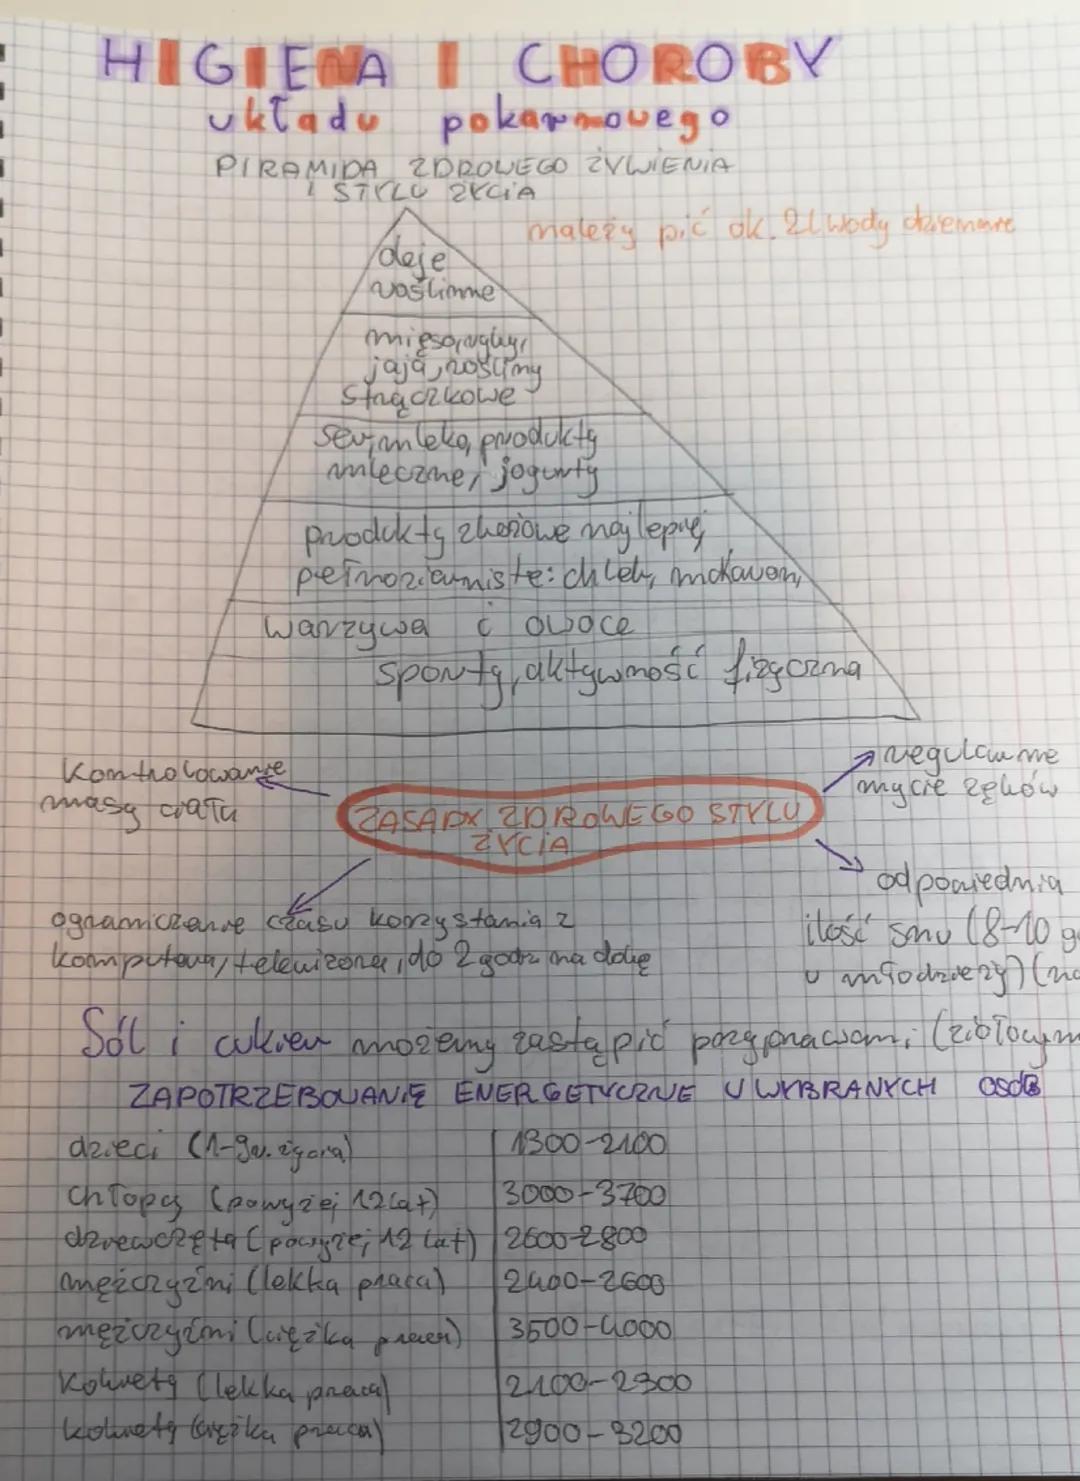 HIGIENA I CHOROBY
układu pokarmowego
PIRAMIDA ZDROWEGO ŻYWIENIA
I STYLU ŻYCIA
należy pić ok. 2l wody dziennie
oleje
roślinne
mięso, ryby,
jaja, rośliny
strączkowe
ser, mleko, produkty
mleczne, jogurty
produkty zbożowe najlepiej
pełnoziarniste: chleb, makaron,
warzywa i owoce
sporty, aktywność fizyczna
regularne
mycie zębów
Kontrolowanie
masy ciału
ZASADY ZDROWEGO STYLU
ŻYCIA
odpowiednia
ilość snu (8-10 go
u młodzieży)
ograniczenie czasu korzystania z
komputera, telewizora, do 2 godz na dobę
Sól i cukier możemy zastąpić przyprawami (ziołowym
ZAPOTRZEBOWANIE ENERGETYCZNE U WYBRANYCH OSÓB
dzieci (1-9 r. życia) 1300-2100
chłopcy (powyżej 12 lat) 3000-3700
dziewczęta (powyżej 12 lat) 2600-2800
mężczyźni (lekka praca) 2400-2600
mężczyźni (ciężka praca) 3500-4000
Kobiety (lekka praca) 2100-2300
kobiety (ciężka praca) 2900-3200